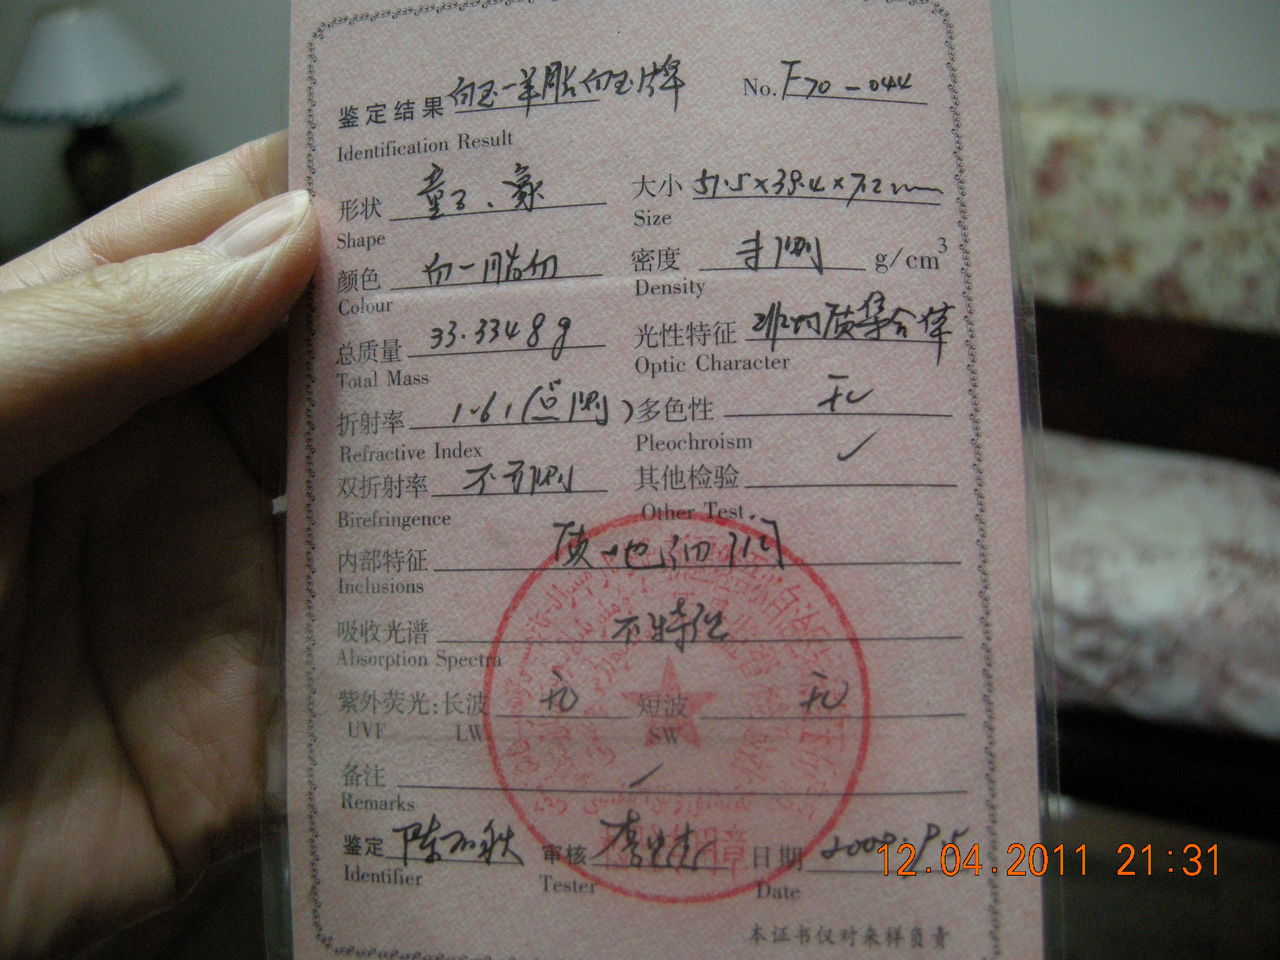 鉴定结果 白玉—羊脂白玉牌 No. F70-044
Identification Result
形状 童子、象 大小 51.5×39.4×7.2mm
Shape Size
颜色 白—脂白 密度 未测 g/cm³
Colour Density
总质量 33.3348g 光性特征 非均质集合体
Total Mass Optic Character
折射率 1.61(点测) 多色性 无
Refractive Index Pleochroism
双折射率 不可测 其他检验
Birefringence Other Test
内部特征 质地细润
Inclusions
吸收光谱 不特征
Absorption Spectra
紫外荧光:长波 无 短波 无
UVF LW SW
备注
Remarks
鉴定 审核 日期
Identifier Tester Date
本证书仅对来样负责
12.04.2011 21:31